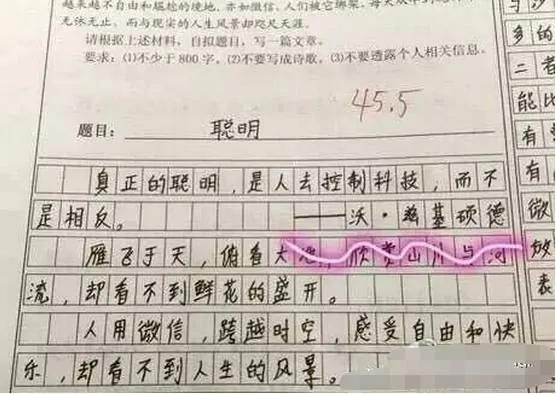 越来越不自由和尴尬的境地。亦如微信,人们被它绑架,每天
无休无止,而与现实的人生风景却咫尺天涯。
请根据上述材料,自拟题目,写一篇文章。
要求:(1)不少于800字。(2)不要写成诗歌。(3)不要透露个人相关信息。
45.5
题目: 聪明
真正的聪明,是人去控制科技,而不
是相反。 ——沃·兹基硕德
雁飞于天,俯看大地,欣赏山川与河
流,却看不到鲜花的盛开。
人用微信,跨越时空,感受自由和快
乐,却看不到人生的风景。
与
乡的
二者
能比
有
有
微
放
表